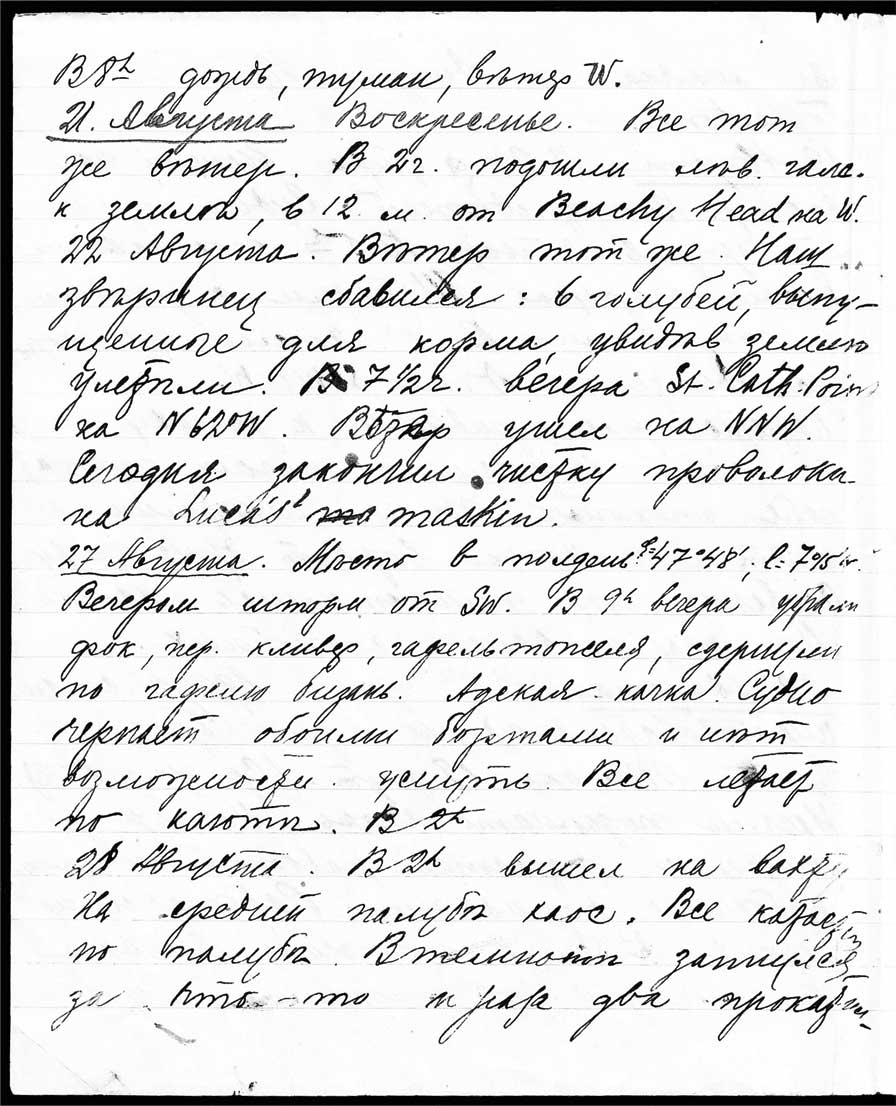 В 8h дождь, туман, вѣтер W.
21. Августа Воскресенье. Все тот
же вѣтер. В 2 г. подошли лѣв. галс.
к землѣ, в 12 м. от Beachy Head на W.
22 Августа. Вѣтер тот же. Наш
звѣринец сбавился: 6 голубей, выпу-
щенные для корма, увидѣв землю
улетѣли. В 7 1/2 ч. вечера St. Cath. Point
на N 62° W. Вѣтер ушел на NNW.
Сегодня закончил чистку проволоки
на Lucas's maskin.
27 Августа. Мѣсто в полдень φ=47°48'; l=7°15'W.
Вечером шторм от SW. В 9h вечера убрали
фок, пер. кливер, гафель топселя, сдернули
по гафелю бизань. Адская качка. Судно
черпает обоими бортами и нѣт
возможности уснуть. Все летает
по каютѣ. В 2h
28 Августа. В 2h вышел на вахту
На средней палубѣ хаос. Все катается
по палубѣ. В темнотѣ запнулся
за что-то и раза два прокатил-